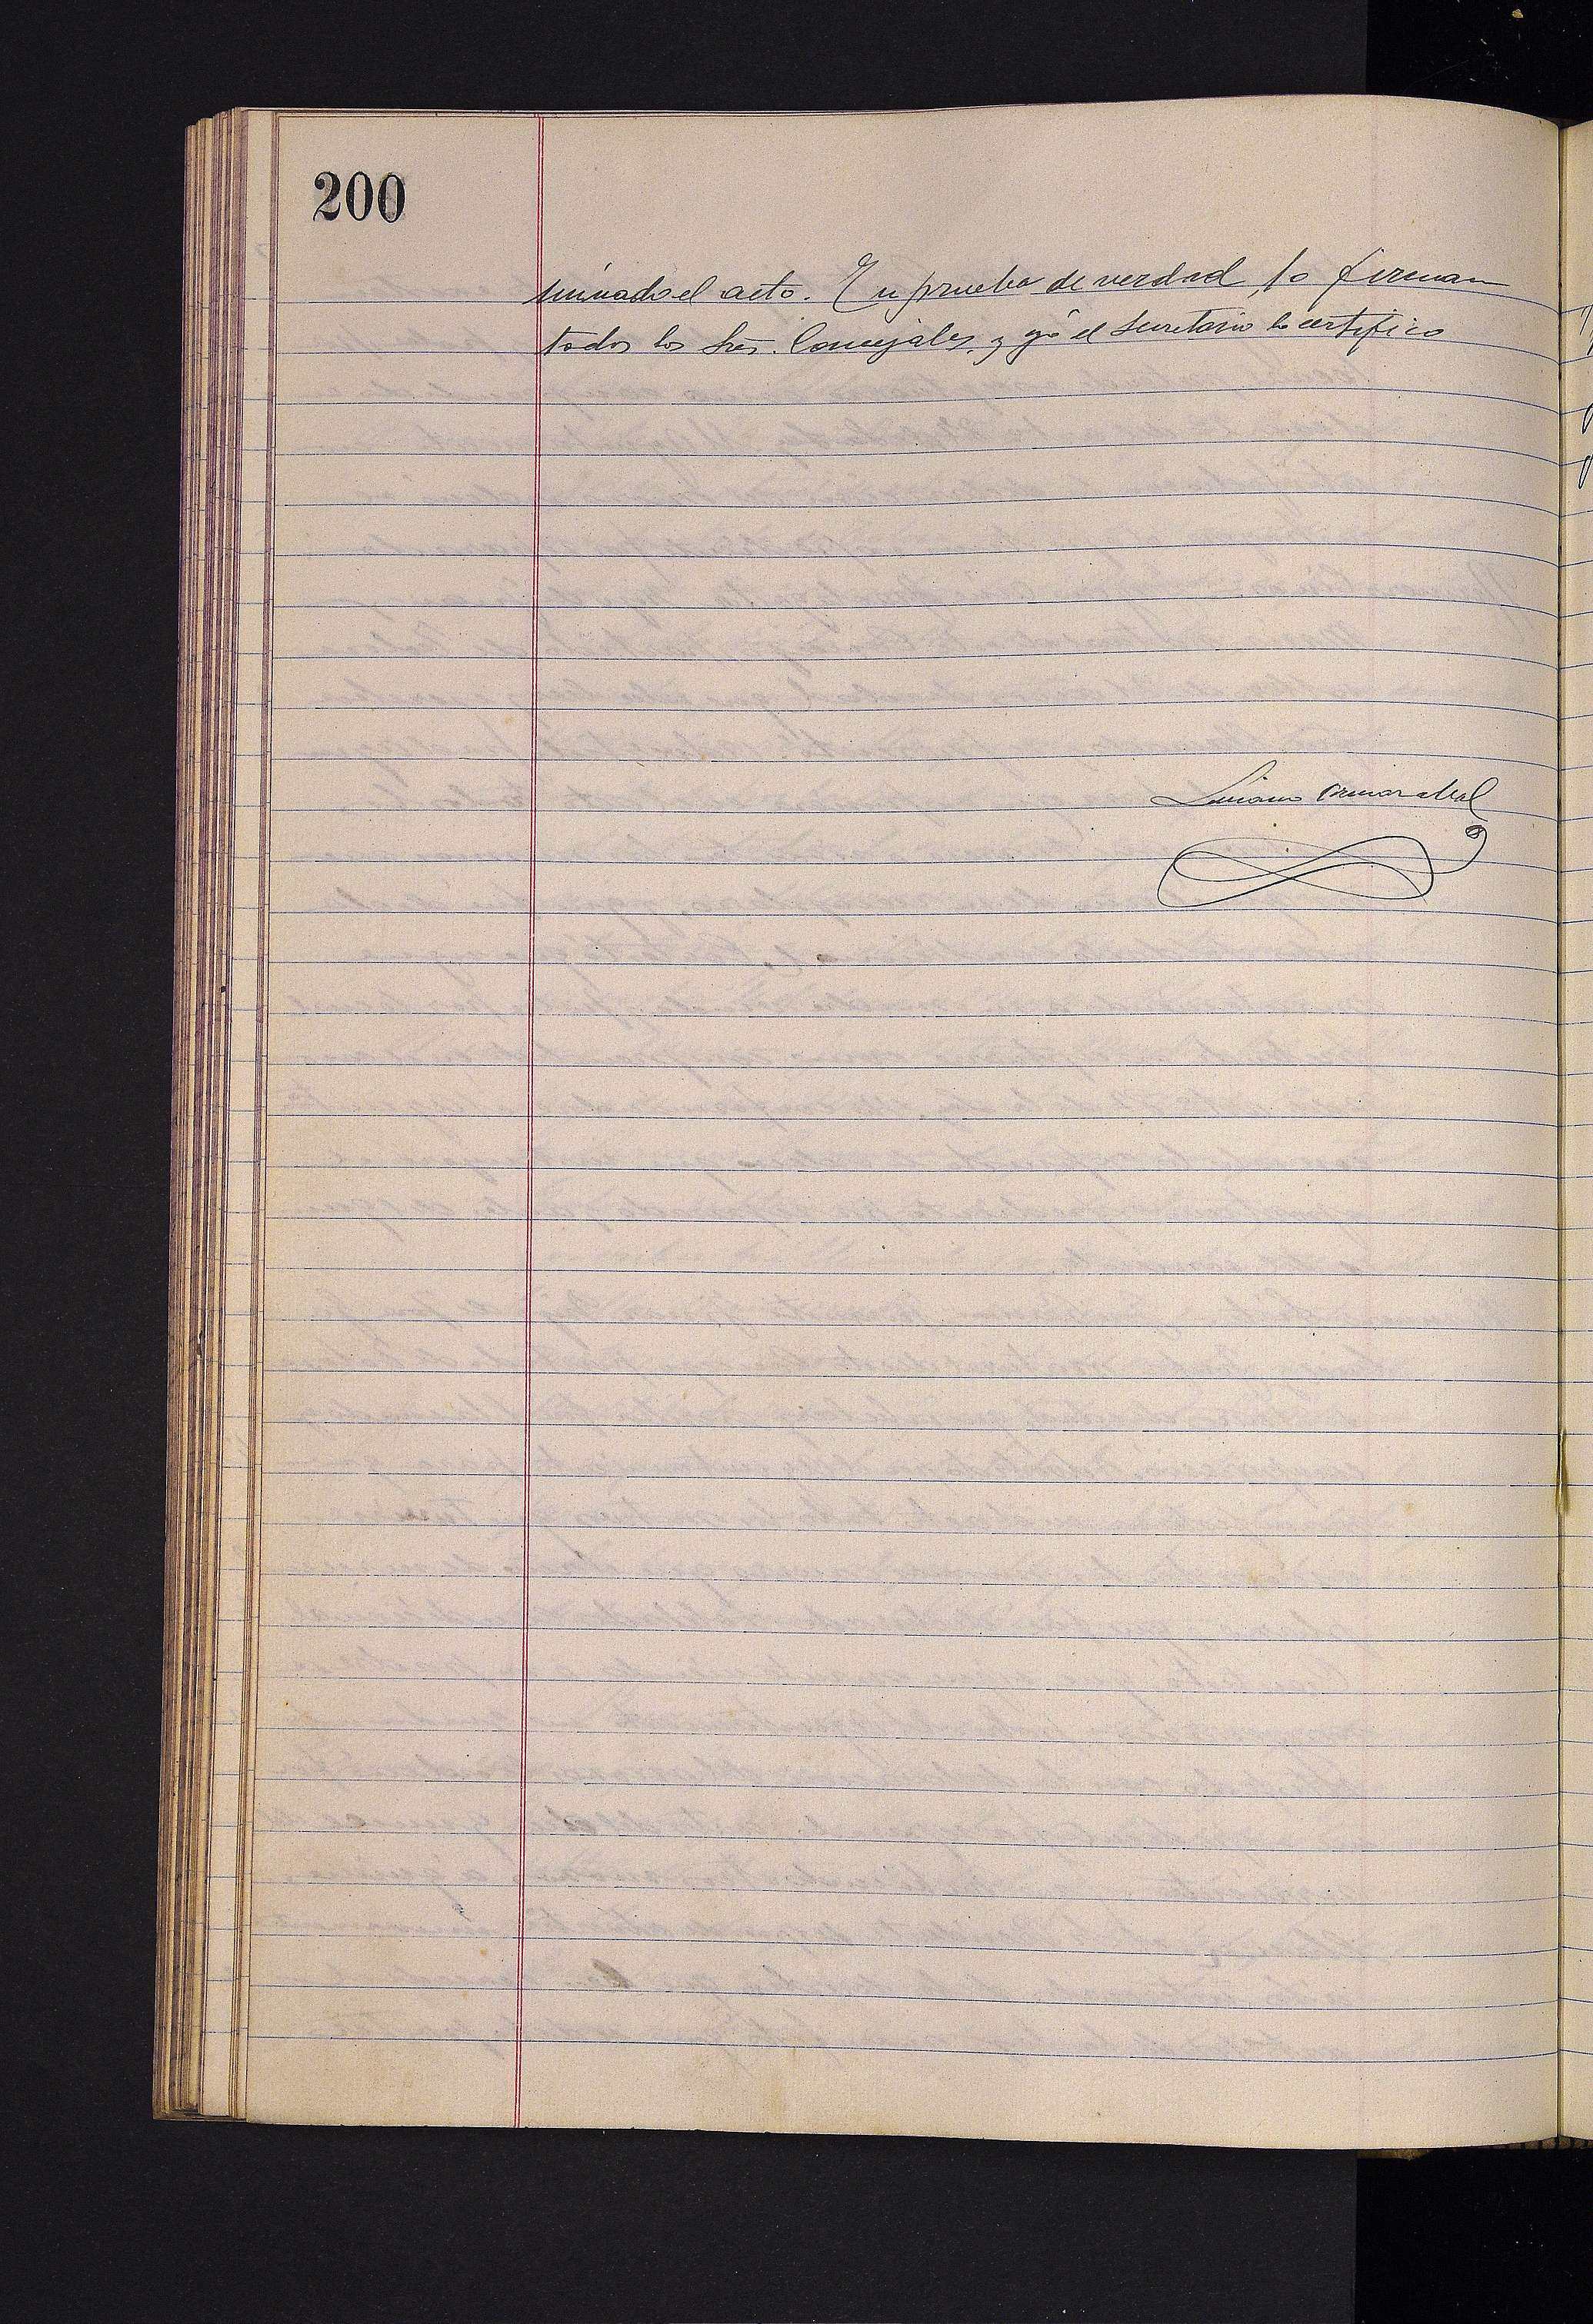 200
minado el acto. En prueba de verdad, lo firman
todos los Sres. Concejales, y yó el Secretario lo certifico
Luciano